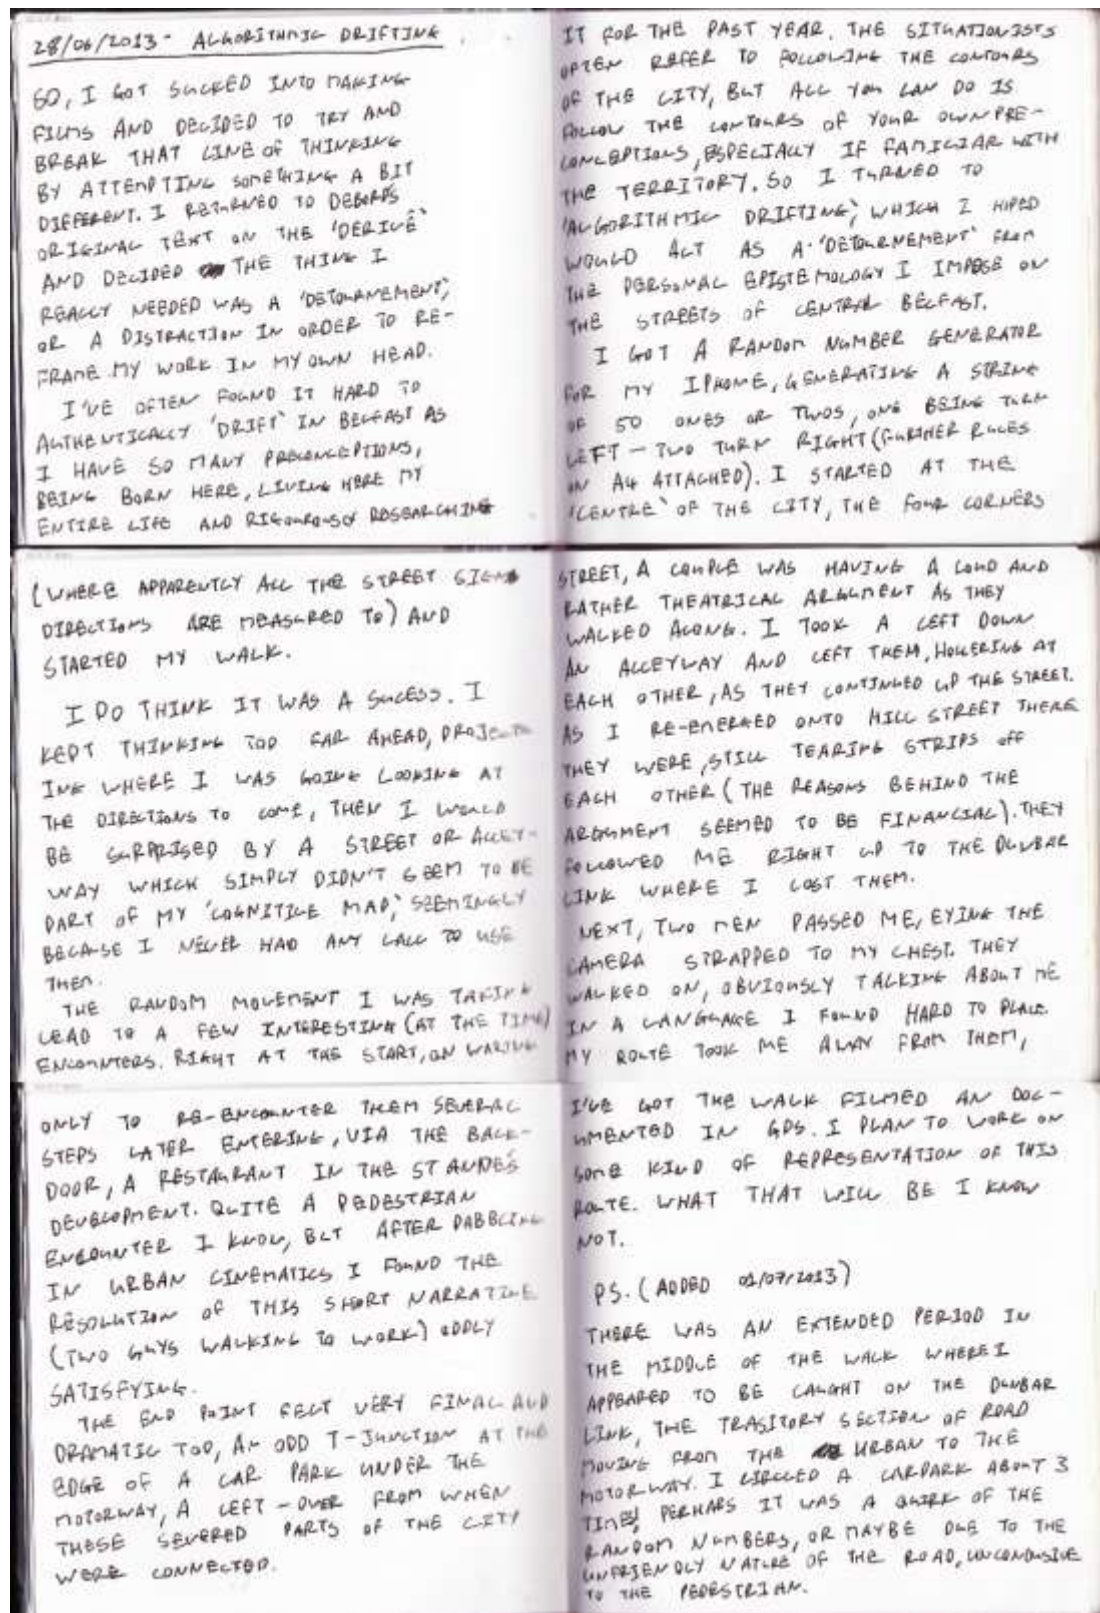 28/06/2013 - ALGORITHMIC DRIFTING
SO, I GOT SUCKED INTO MAKING
FILMS AND DECIDED TO TRY AND
BREAK THAT LINE OF THINKING
BY ATTEMPTING SOMETHING A BIT
DIFFERENT. I RETURNED TO DEBORD'S
ORIGINAL TEXT ON THE 'DERIVE'
AND DECIDED THE THING I
REALLY NEEDED WAS A 'DETOURNEMENT',
OR A DISTRACTION IN ORDER TO RE-
FRAME MY WORK IN MY OWN HEAD.
I'VE OFTEN FOUND IT HARD TO
AUTHENTICALLY 'DRIFT' IN BELFAST AS
I HAVE SO MANY PRECONCEPTIONS,
BEING BORN HERE, LIVING HERE MY
ENTIRE LIFE AND RIGOUROUSLY RESEARCHING
IT FOR THE PAST YEAR. THE SITUATIONISTS
OFTEN REFER TO FOLLOWING THE CONTOURS
OF THE CITY, BUT ALL YOU CAN DO IS
FOLLOW THE CONTOURS OF YOUR OWN PRE-
CONCEPTIONS, ESPECIALLY IF FAMILIAR WITH
THE TERRITORY. SO I TURNED TO
'ALGORITHMIC DRIFTING', WHICH I HOPED
WOULD ACT AS A 'DETOURNEMENT' FROM
THE PERSONAL EPISTEMOLOGY I IMPOSE ON
THE STREETS OF CENTRAL BELFAST.
I GOT A RANDOM NUMBER GENERATOR
FOR MY IPHONE, GENERATING A STRING
OF 50 ONES OR TWOS, ONE BEING TURN
LEFT - TWO TURN RIGHT (FURTHER RULES
ON A4 ATTACHED). I STARTED AT THE
'CENTRE' OF THE CITY, THE FOUR CORNERS
(WHERE APPARENTLY ALL THE STREET SIGN
DIRECTIONS ARE MEASURED TO) AND
STARTED MY WALK.
I DO THINK IT WAS A SUCESS. I
KEPT THINKING TOO FAR AHEAD, PROJECT-
ING WHERE I WAS GOING LOOKING AT
THE DIRECTIONS TO COME, THEN I WOULD
BE SURPRISED BY A STREET OR ALLEY-
WAY WHICH SIMPLY DIDN'T SEEM TO BE
PART OF MY 'COGNITIVE MAP', SEEMINGLY
BECAUSE I NEVER HAD ANY CALL TO USE
THEM.
THE RANDOM MOVEMENT I WAS TAKING
LEAD TO A FEW INTERESTING (AT THE TIME)
ENCOUNTERS. RIGHT AT THE START, ON WARING
STREET, A COUPLE WAS HAVING A LOUD AND
RATHER THEATRICAL ARGUMENT AS THEY
WALKED ALONG. I TOOK A LEFT DOWN
AN ALLEYWAY AND LEFT THEM, HOLLERING AT
EACH OTHER, AS THEY CONTINUED UP THE STREET.
AS I RE-EMERGED ONTO HILL STREET THERE
THEY WERE, STILL TEARING STRIPS OFF
EACH OTHER (THE REASONS BEHIND THE
ARGUMENT SEEMED TO BE FINANCIAL). THEY
FOLLOWED ME RIGHT UP TO THE DUNBAR
LINK WHERE I LOST THEM.
NEXT, TWO MEN PASSED ME, EYING THE
CAMERA STRAPPED TO MY CHEST. THEY
WALKED ON, OBVIOUSLY TALKING ABOUT ME
IN A LANGUAGE I FOUND HARD TO PLACE.
MY ROUTE TOOK ME AWAY FROM THEM,
ONLY TO RE-ENCOUNTER THEM SEVERAL
STEPS LATER ENTERING, VIA THE BACK-
DOOR, A RESTAURANT IN THE ST ANNE'S
DEVELOPMENT. QUITE A PEDESTRIAN
ENCOUNTER I KNOW, BUT AFTER DABBLING
IN URBAN CINEMATICS I FOUND THE
RESOLUTION OF THIS SHORT NARRATIVE
(TWO GUYS WALKING TO WORK) ODDLY
SATISFYING.
THE END POINT FELT VERY FINAL AND
DRAMATIC TOO, AN ODD T-JUNCTION AT THE
EDGE OF A CAR PARK UNDER THE
MOTORWAY, A LEFT-OVER FROM WHEN
THESE SEVERED PARTS OF THE CITY
WERE CONNECTED.
I'VE GOT THE WALK FILMED AN DOC-
UMENTED IN GPS. I PLAN TO WORK ON
SOME KIND OF REPRESENTATION OF THIS
ROUTE. WHAT THAT WILL BE I KNOW
NOT.
PS. (ADDED 01/07/2013)
THERE WAS AN EXTENDED PERIOD IN
THE MIDDLE OF THE WALK WHERE I
APPEARED TO BE CAUGHT ON THE DUNBAR
LINK, THE TRASITORY SECTION OF ROAD
MOVING FROM THE URBAN TO THE
MOTORWAY. I CIRCLED A CARPARK ABOUT 3
TIMES, PERHAPS IT WAS A QUIRK OF THE
RANDOM NUMBERS, OR MAYBE DUE TO THE
UNFRIENDLY NATURE OF THE ROAD, UNCONDUSIVE
TO THE PEDESTRIAN.